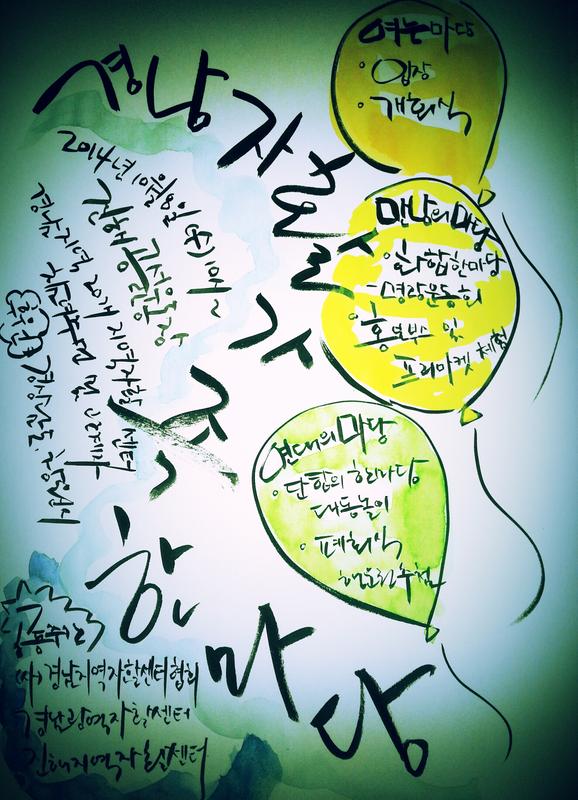 경남자활
가족
한마당
여는마당
· 입장
· 개회식
만남의마당
· 화합한마당
- 명랑운동회
· 홍보부스 및
프리마켓 체험
연대의마당
· 단합의 한마당
대동놀이
· 폐회식
행운권추첨
2014년 10월 8일 (수) 10시~
김해
경남지역 20개 지역자활센터
및
후원
경상남도,
공동주최
(사)경남지역자활센터협회
경남광역자활센터
김해지역자활센터